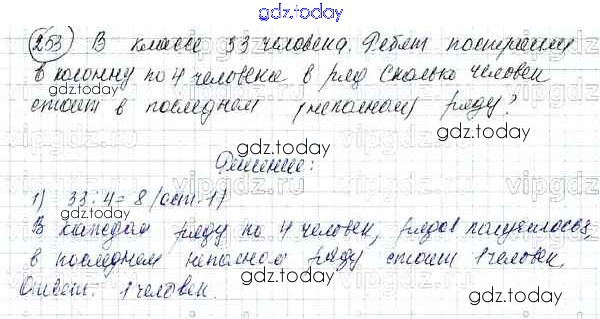 gdz.today
253) В классе 33 человека. Ребят построили
в колонну по 4 человека в ряд. Сколько человек
gdz.today
стоит в последнем (неполном) ряду?
gdz.today
Решение:
gdz.today
1) 33:4=8 (ост. 1)
В каждом ряду по 4 человек, рядов получилось 8,
gdz.today
в последнем неполном ряду стоит 1 человек.
Ответ: 1 человек.
gdz.today